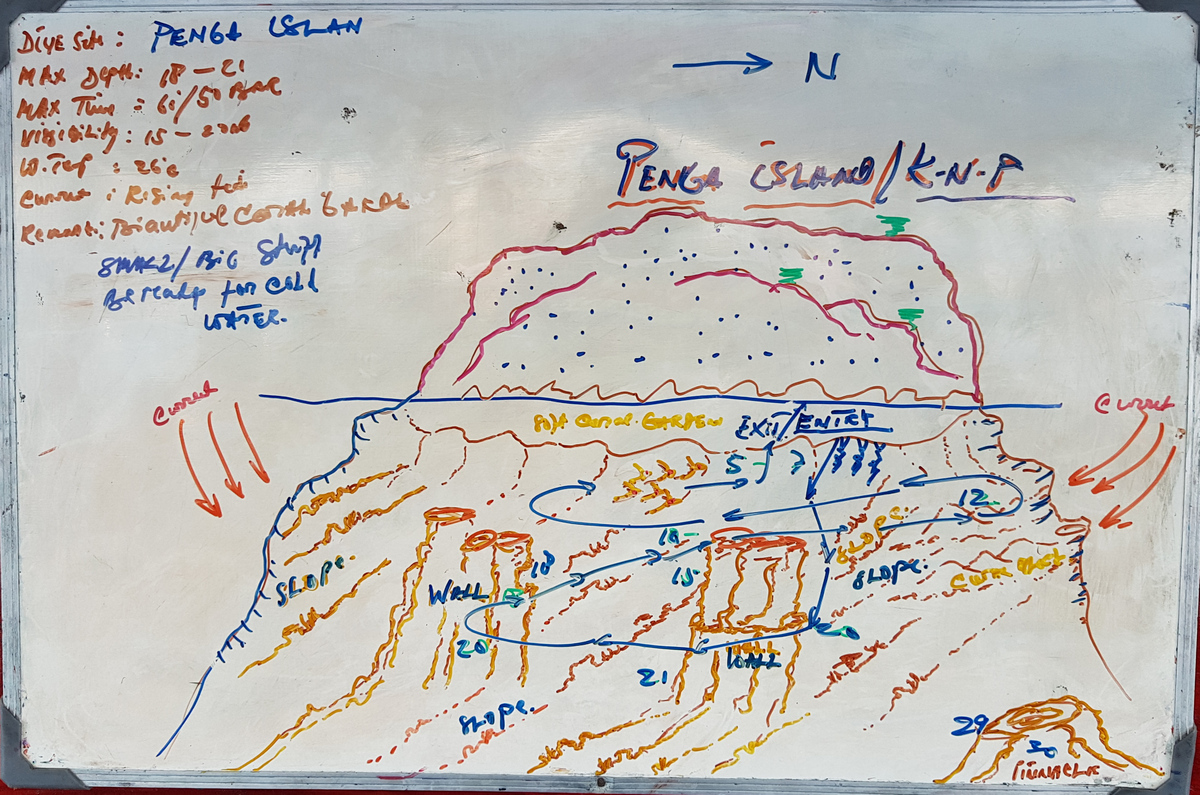 DiVe Site : PENGA ISLAN
MAX Depth: 18 – 21
MAX Time : 61/50 BAR
Visibility : 15 –
W.Tep : 26c
Current : Rising
Remark: Biautiful CORAL GARDE
/ BiG Stuff
Be Ready for Cold
WATER.
N
PENGA ISLAND/K-N-P
Current
Current
GARDEN
EXIT/ENTRY
5 – 7
12
SLOPE.
SLOPE.
SLOPE.
WALL
18
15
20
21
WALL
SLOPE.
29
30
Pinnacle